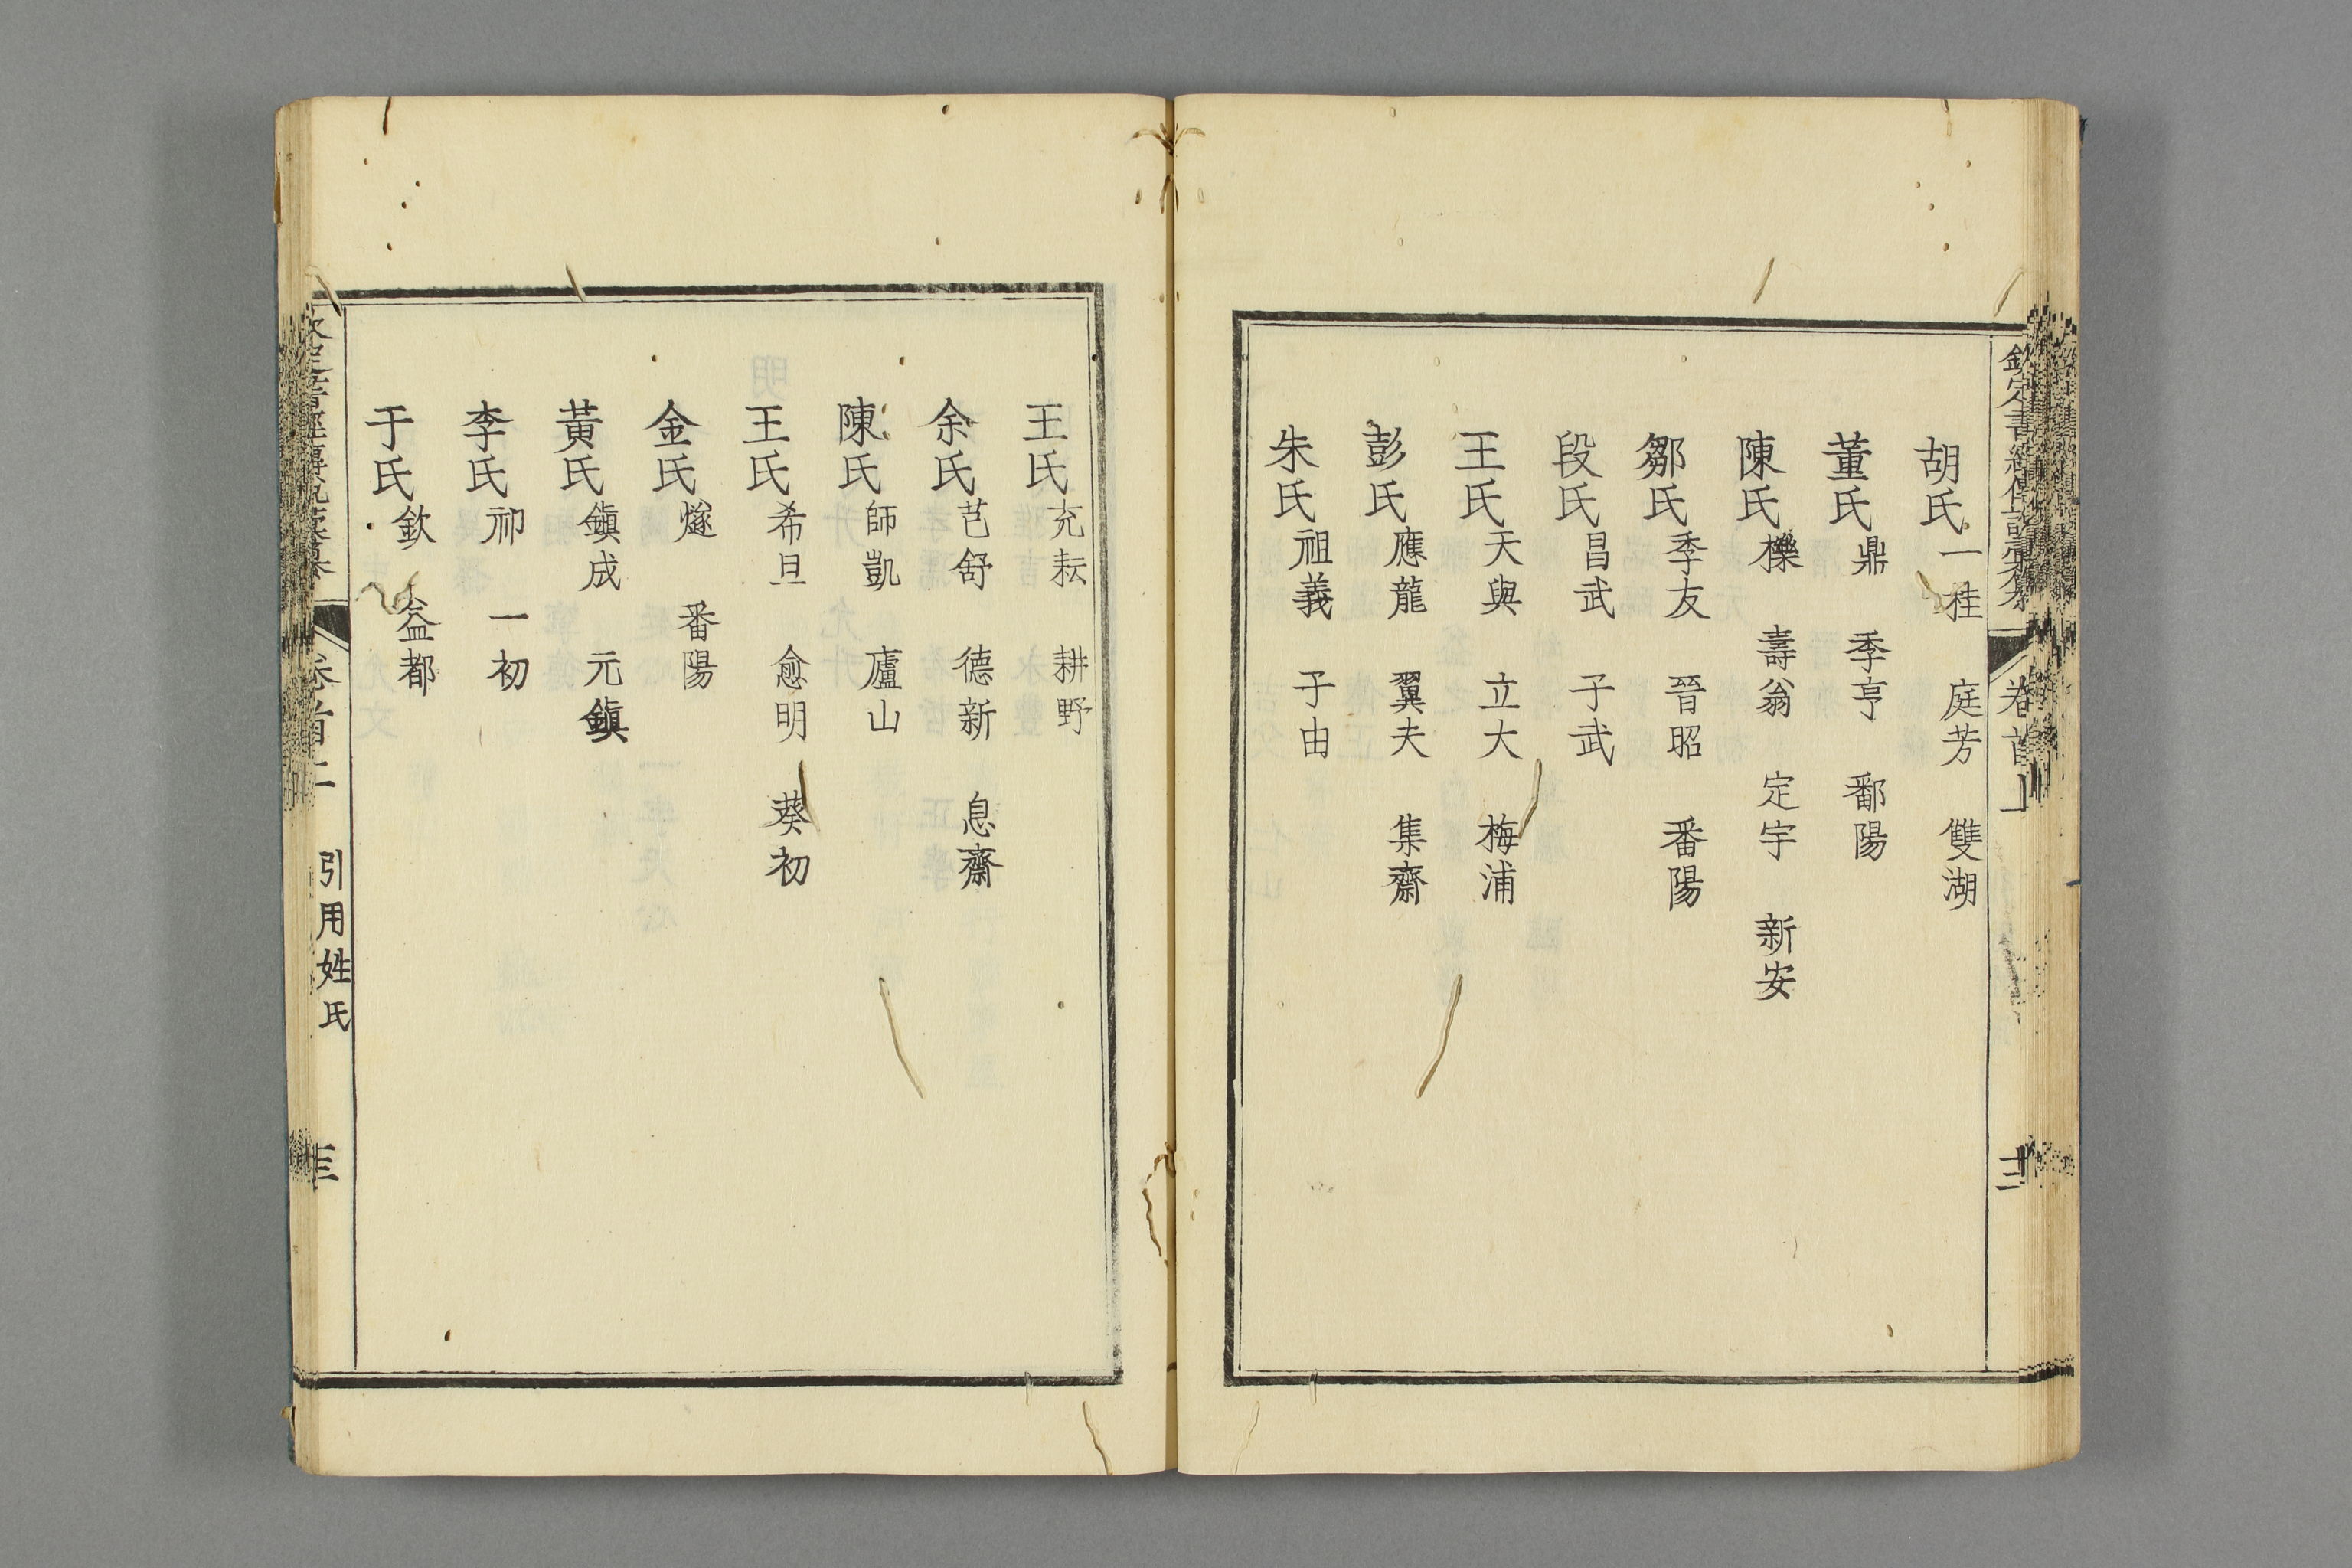 欽定書經傳說彙纂 卷首
胡氏一桂 庭芳 雙湖
董氏鼎 季亨 鄱陽
陳氏櫟 壽翁 定宇 新安
鄒氏季友 晉昭 番陽
段氏昌武 子武
王氏天與 立大 梅浦
彭氏應龍 翼夫 集齋
朱氏祖義 子由
王氏充耘 耕野
余氏芑舒 德新 息齋
陳氏師凱 廬山
王氏希旦 愈明 葵初
金氏燧 番陽
黃氏鎮成 元鎮
李氏祁 一初
于氏欽 益都
卷首 引用姓氏